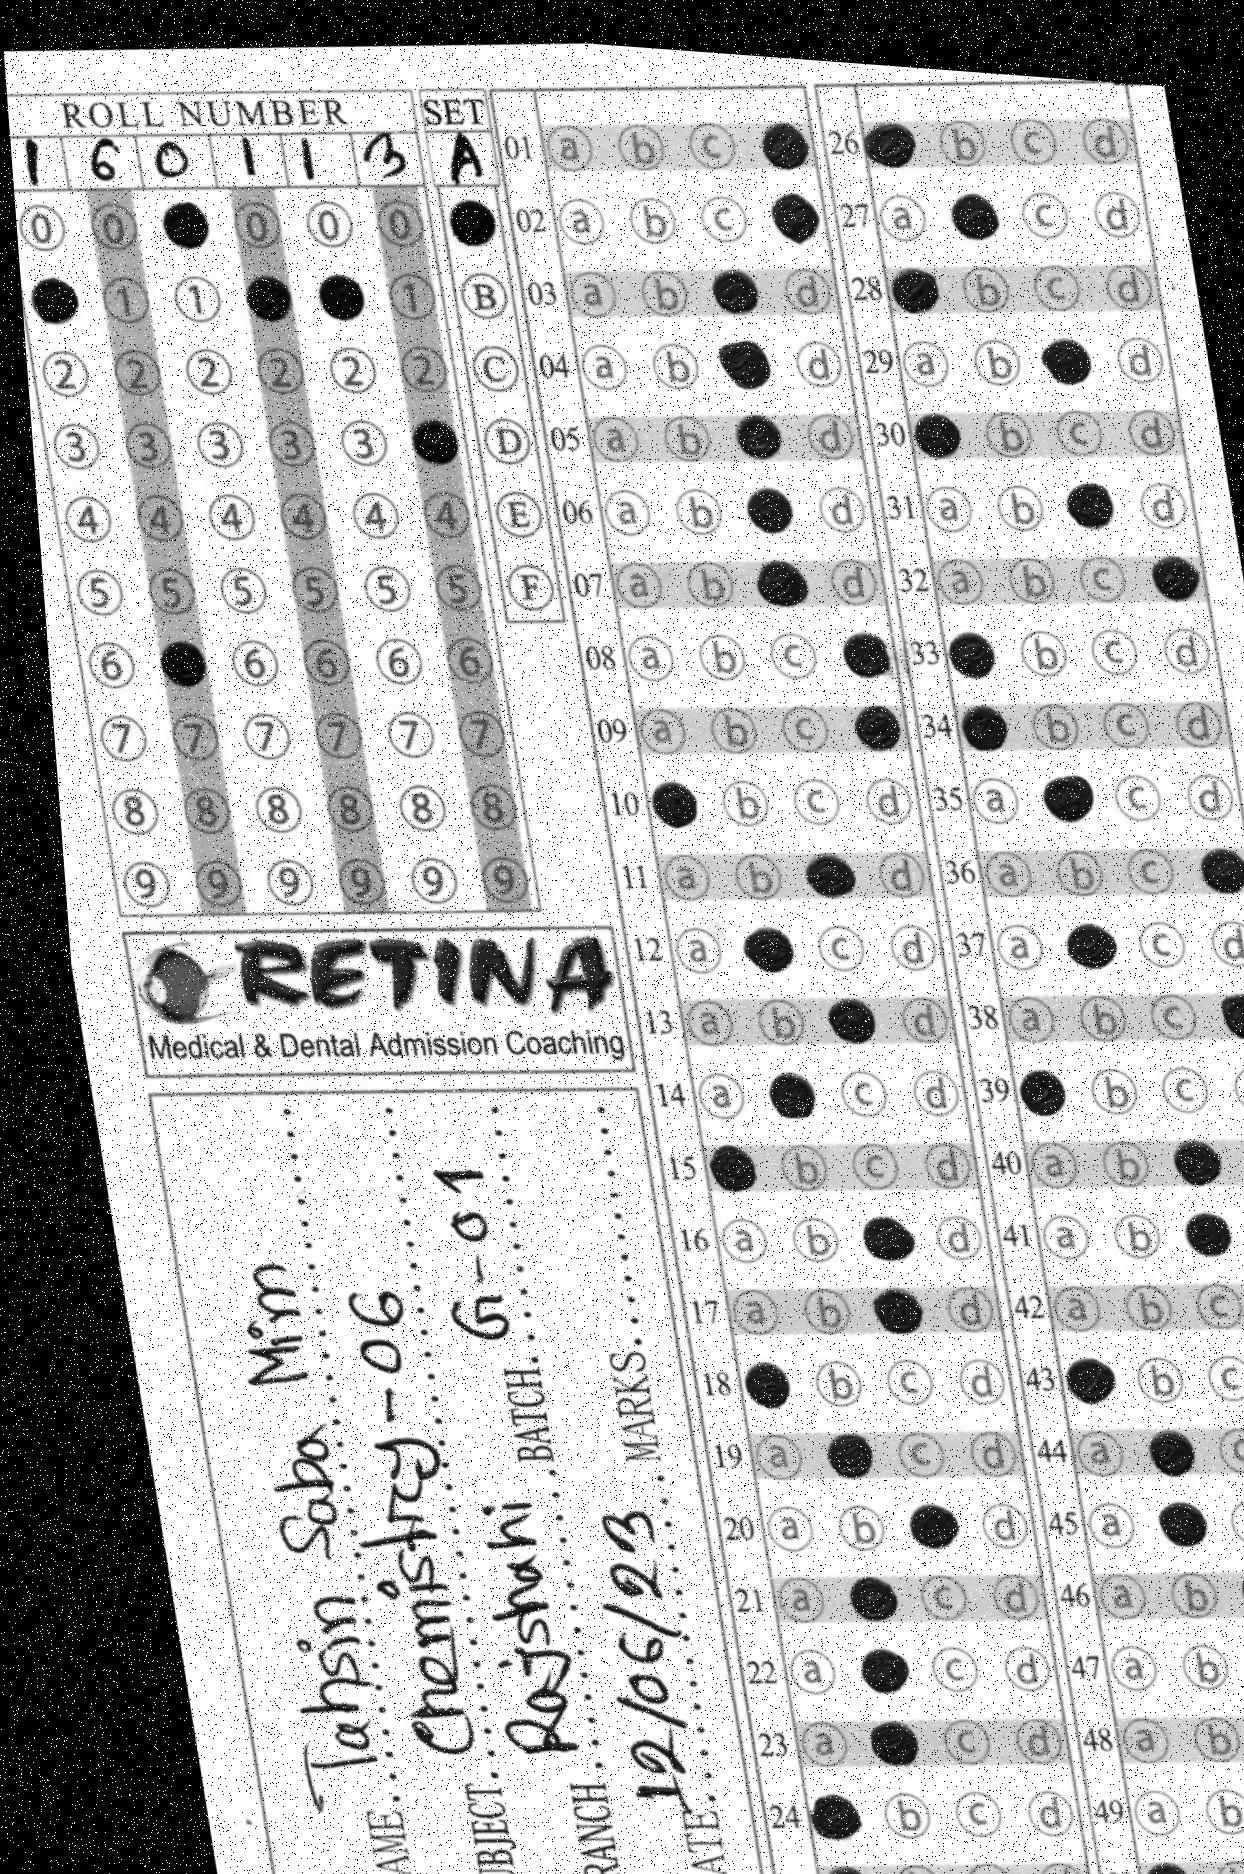 ROLL NUMBER SET
1 6 0 1 1 3 A
0 0 0 0 0
1 1 1 B
2 2 2 2 2 2 C
3 3 3 3 3 D
4 4 4 4 4 4 E
5 5 5 5 5 5 F
6 6 6 6 6
7 7 7 7 7 7
8 8 8 8 8 8
9 9 9 9 9 9
RETINA
Medical & Dental Admission Coaching
AME Tahsin Saba Mim
BJECT Chemistry-06
RANCH Rajshahi BATCH G-01
ATE 12/06/23 MARKS
01 a b c
02 a b c
03 a b d
04 a b d
05 a b d
06 a b d
07 a b d
08 a b c
09 a b c
10 b c d
11 a b d
12 a c d
13 a b d
14 a c d
15 b c d
16 a b d
17 a b d
18 b c d
19 a c d
20 a b d
21 a c d
22 a c d
23 a c d
24 b c d
26 b c d
27 a c d
28 b c d
29 a b d
30 b c d
31 a b d
32 a b c
33 b c d
34 b c d
35 a c d
36 a b c
37 a c d
38 a b c
39 b c
40 a b
41 a b
42 a b c
43 b c
44 a c
45 a
46 a b
47 a b
48 a b
49 a b